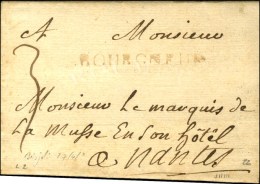 A Monsieur
BOURGNEUF
Monsieur Le marquis de
La Musse En Son hôtel
a nantes